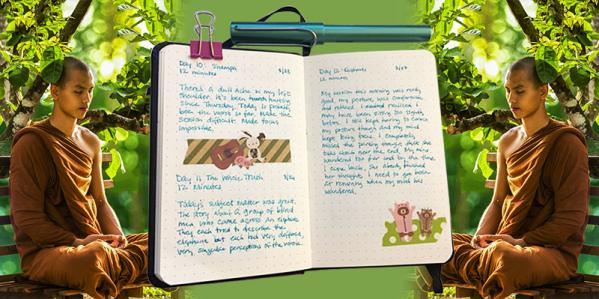 Day 10: Strength 3/25
12 minutes
There's a dull ache in my left
shoulder. It's been hurting
since Thursday. Today is
been the worst so far. Made the
session difficult. Made focus
impossible.
Day 11 The Whole Truth 3/26
12 Minutes
Today's subject matter was great.
The story about a group of blind
men who came across an elephant.
They each tried to describe the
elephant but each had very different,
very singular perceptions of the whole.
Day 12: 3/27
12 minutes
My session this morning was really
good, my posture was comfortable
and relaxed. I realize I
may have been sitting too tightly
before. I still kept having to correct
my posture though and my mind
kept being busy. I completely
missed the parting thought that she
talks about near the end. My mind
wandered too far and by the time
I came back, she already finished
her thought. I need to get better
at remaining when my mind has
wandered.